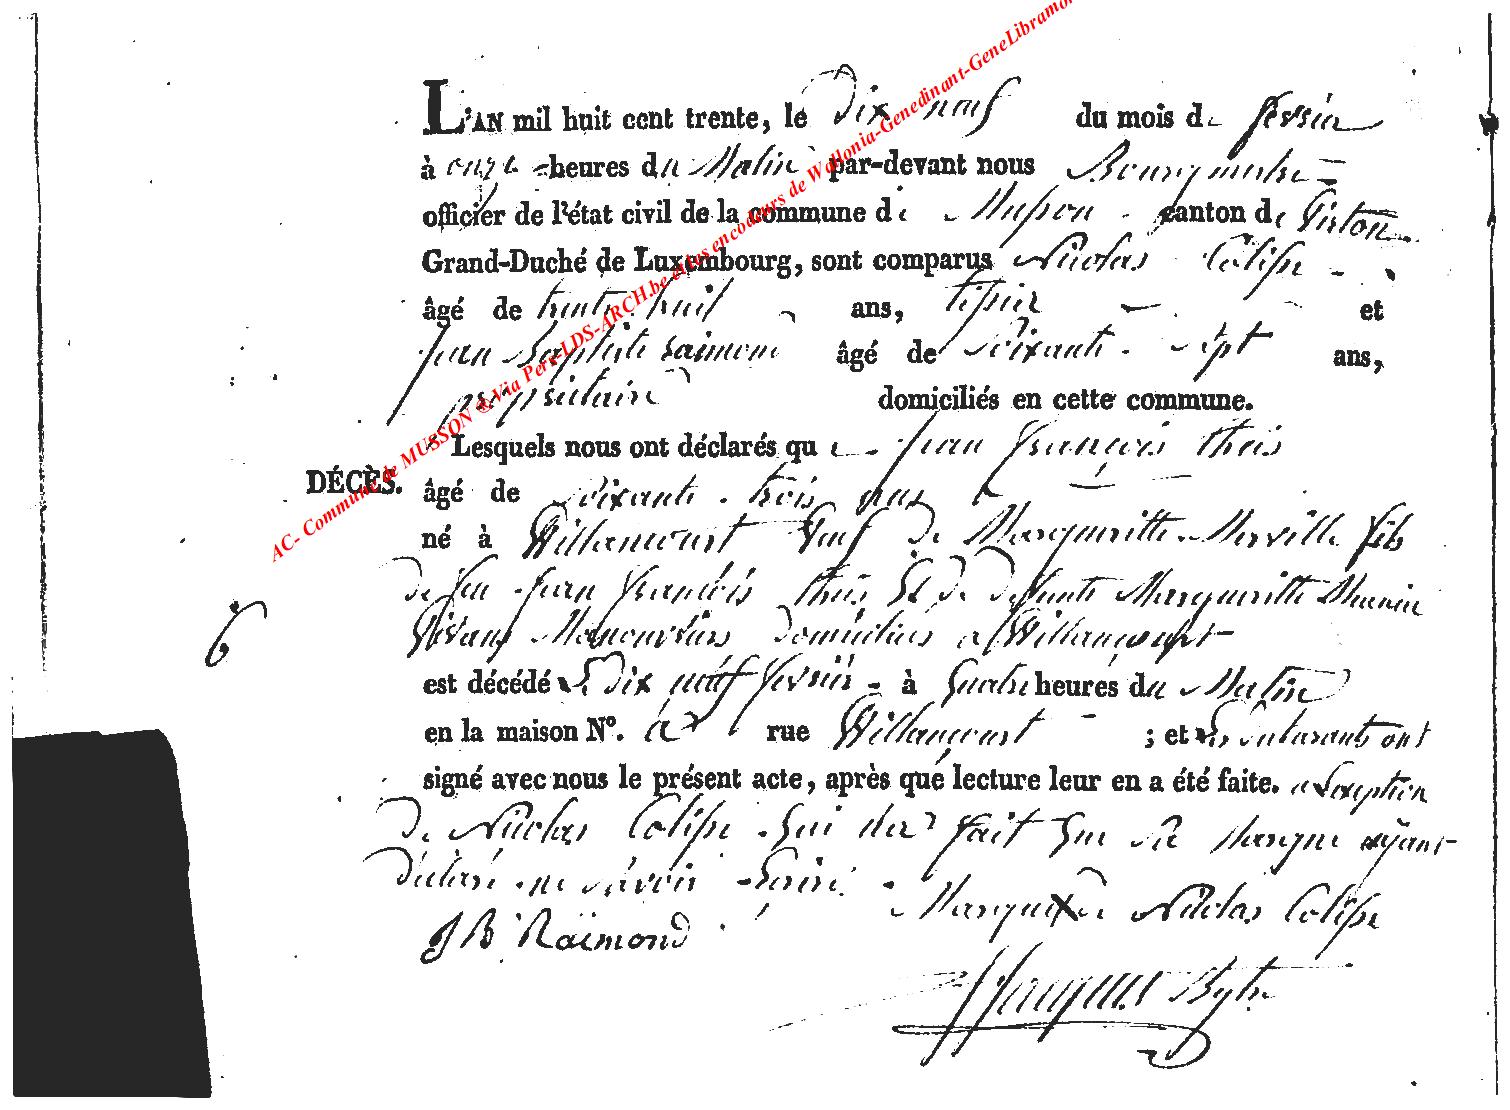 L'AN mil huit cent trente, le Dix neuf du mois de fevrier
à onze heures du Matin par-devant nous Bourgmestre
officier de l'état civil de la commune de Musson canton de Virton
Grand-Duché de Luxembourg, sont comparus Nicolas Colisse
âgé de trente huit ans, tissier et
Jean Baptiste Raimond âgé de Soixante Sept ans,
propriétaire domiciliés en cette commune.
Lesquels nous ont déclarés que Jean François
DÉCÈS. âgé de Soixante trois ans
né à Willancourt Veuf De Margueritte Merville fils
de feu Jean François Et De Defunte Margueritte
Vivans Manouvriers domiciliés a Willancourt
est décédé le Dix neuf fevrier à quatre heures du Matin
en la maison Nº. à rue Willancourt ; et les Declarants ont
signé avec nous le présent acte, après que lecture leur en a été faite. a L'exception
De Nicolas Colisse qui fait Sa Marque ayant
déclaré ne Savoir Ecrire.
Marque X De Nicolas Colisse
J B Raimond
6
AC- Commune de MUSSON ® Via Pers-LDS-ARCH.be et les encodeurs de Wallonia-Genedinant-GeneLibramo